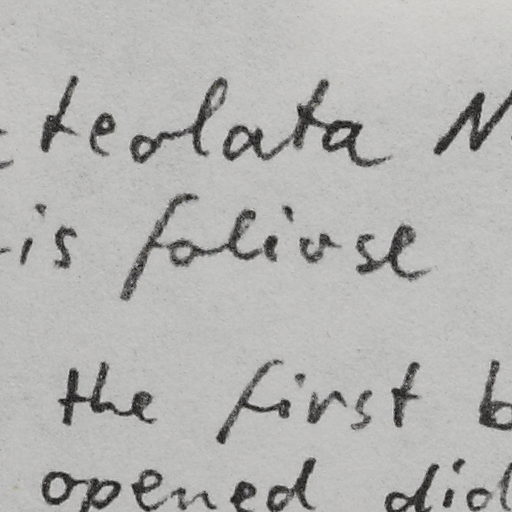 teolata N
is foliose
the first b
opened did